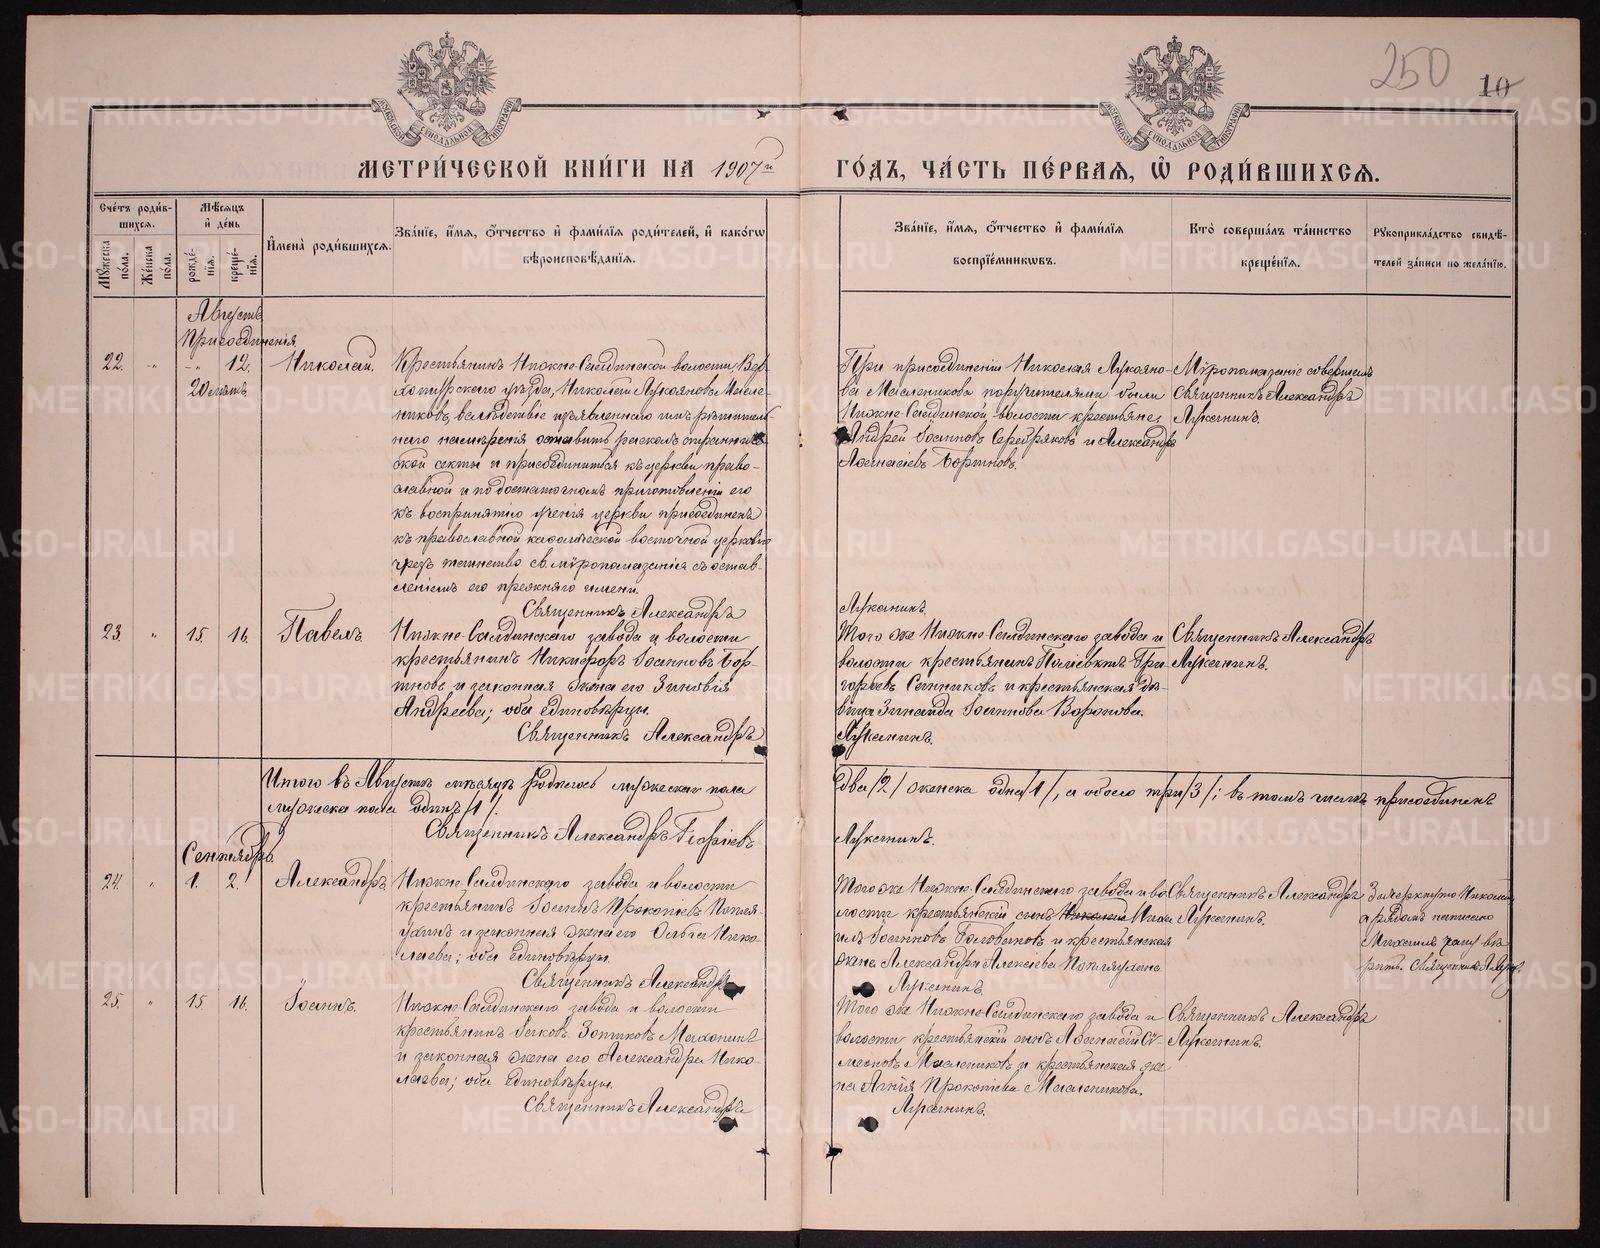 250
10
МЕТРИ́ЧЕСКОЙ КНИ́ГИ НА 1907й ГО́ДЪ, ЧА́СТЬ ПЕ́РВАЯ, Ѡ҆ РОДИ́ВШИХСЯ.
Сче́тъ роди́в-
шихся.
Мꙋ́жеска по́ла.
Же́нска по́ла.
Мѣ́сяцъ
и҆ де́нь
рожде́-
нїя.
креще́-
нїя.
И҆мена̀ роди́вшихся.
Зва́нїе, и҆́мя, ѻ҆́тчество и҆ фами́лїя роди́телей, и҆ како́гѡ
вѣроисповѣ́данїя.
Зва́нїе, и҆́мя, ѻ҆́тчество и҆ фами́лїя
воспрїе́мникѡвъ.
Кто̀ соверша́лъ та́инство
креще́нїя.
Рꙋкоприкла́дство свидѣ́-
телей за́писи по жела́нїю.
Августъ
Присоединенія
22. " " 12. Николай.
20 лѣтъ
Крестьянинъ Нижне-Салдинской волости, Вер-
хотурскаго уѣзда, Николай Лукояновъ Масле-
никовъ, вслѣдствіе изъявленнаго имъ рѣшитель-
наго намѣренія оставить расколъ странниче-
ской секты и присоединиться къ церкви право-
славной и по достаточномъ приготовленіи его
къ воспринятію ученія церкви присоединенъ
къ православной каѳолической восточной церкви
чрезъ таинство св. мѵропомазанія съ остав-
леніемъ его прежняго имени.
Священникъ Александръ
При присоединеніи Николая Лукояно-
ва Масленикова поручителями были
Нижне-Салдинской волости крестьяне,
Андрей Іоанновъ Серебряковъ и Александръ
Аѳанасіевъ Бортновъ.
Луканинъ.
Мѵропомазаніе совершилъ
Священникъ Александръ
Луканинъ.
23. " 15. 16. Павелъ
Нижне-Салдинскаго завода и волости
крестьянинъ Никифоръ Іоанновъ Борт-
новъ и законная жена его Зиновія
Андреева; оба единовѣрцы.
Священникъ Александръ
Того же Нижне-Салдинскаго завода и
волости крестьянинъ Поліевктъ Гри-
горьевъ Санниковъ и крестьянская дѣ-
вица Зинаида Іоаннова Воронова.
Луканинъ.
Священникъ Александръ
Луканинъ.
Итого въ Августѣ мѣсяцѣ родилось мужескаго пола два /2/ женска одна /1/, а обоего три /3/; въ томъ числѣ присоединен
мужеска пола одинъ /1/.
Священникъ Александръ Георгіевъ Луканинъ.
Сентябрь.
24. " 1. 2. Александръ
Нижне-Салдинскаго завода и волости
крестьянинъ Іоаннъ Прокопіевъ
и законная жена его Ольга Нико-
лаева; оба единовѣрцы.
Священникъ Александръ
Того же Нижне-Салдинскаго завода и во
лости крестьянскій сынъ Николай Миха
илъ Іоанновъ Головановъ и крестьянская
жена Александра Алексіева
Луканинъ.
Священникъ Александръ
Луканинъ.
Зачеркнуто Николай,
а рядомъ написано
Михаилъ чему вѣ
рить. Священникъ А. Лук.
25. " 15. 16. Іоаннъ.
Нижне-Салдинскаго завода и волости
крестьянинъ Іаковъ Зотиковъ Махонинъ
и законная жена его Александра Нико-
лаева; оба единовѣрцы.
Священникъ Александръ
Того же Нижне-Салдинскаго завода и
волости крестьянскій сынъ Аѳанасій Си-
меоновъ Маслениковъ и крестьянская же-
на Агнія Прокопіева Масленикова.
Луканинъ.
Священникъ Александръ
Луканинъ.
METRIKI.GASO-URAL.RU